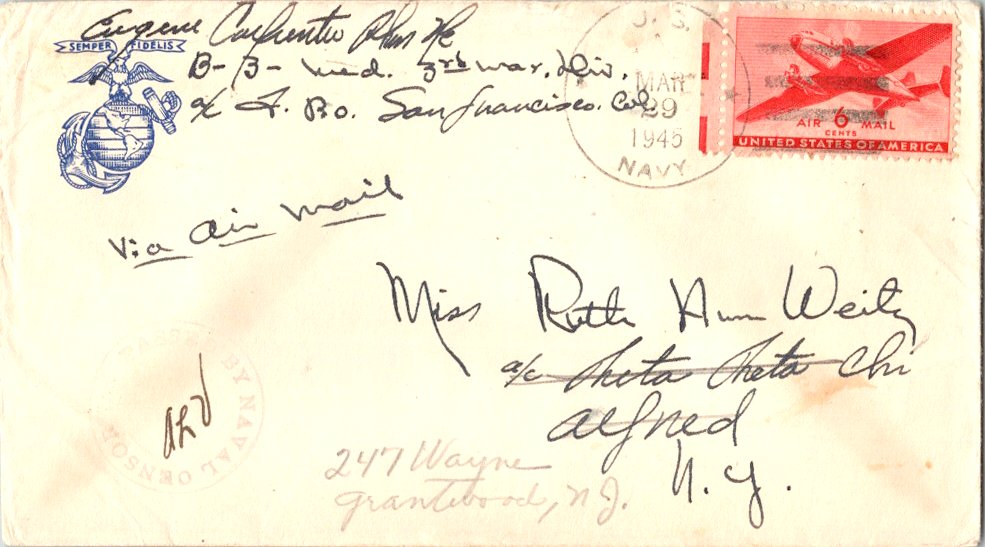 Eugene Carpenter PhM 2/c
SEMPER FIDELIS
B-3-Med. 3rd Mar. Div.
c/o F. P.O. San Francisco. Cal.
U. S.
MAR
29
1945
NAVY
AIR 6 MAIL
CENTS
UNITED STATES OF AMERICA
Via Air Mail
Miss Ruth Ann Weitz
c/o Theta Theta Chi
Alfred
N.Y.
PASSED BY NAVAL CENSOR
247 Wayne
Grantwood, N.J.